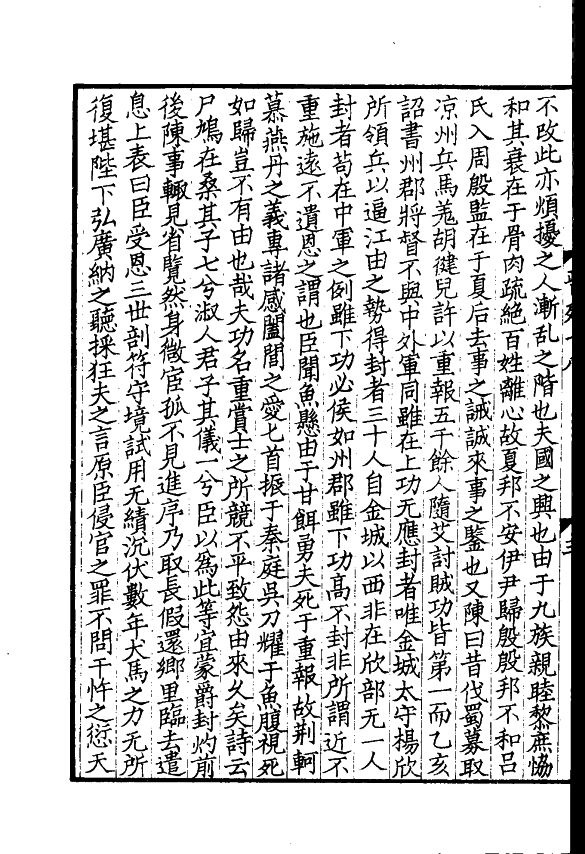 不改此亦煩擾之人漸乱之階也夫國之興也由于九族親睦黎庶恊
和其衰在于骨肉疏絕百姓離心故夏邦不安伊尹歸殷殷邦不和呂
氏入周殷監在于夏后去事之誡誠來事之鑒也又陳曰昔伐蜀募取
凉州兵馬羗胡徤兒許以重報五千餘人隨艾討賊功皆第一而乙亥
詔書州郡將督不與中外軍同雖在上功无應封者唯金城太守楊欣
所領兵以逼江由之勢得封者三十人自金城以西非在欣部无一人
封者苟在中軍之例雖下功必侯如州郡雖下功高不封非所謂近不
重施逺不遺恩之謂也臣聞魚懸由于甘餌勇夫死于重報故荆軻
慕燕丹之義專諸感闔閭之愛匕首振于秦庭吳刀耀于魚腹視死
如歸豈不有由也哉夫功名重賞士之所競不平致怨由來久矣詩云
尸鳩在桑其子七兮淑人君子其儀一兮臣以爲此等宜蒙爵封灼前
後陳事輙見省覽然身微宦孤不見進序乃取長假還鄉里臨去遣
息上表曰臣受恩三世剖符守境試用无績沉伏數年犬馬之力无所
復堪陛下弘廣納之聽採狂夫之言原臣侵官之罪不問干忤之愆天